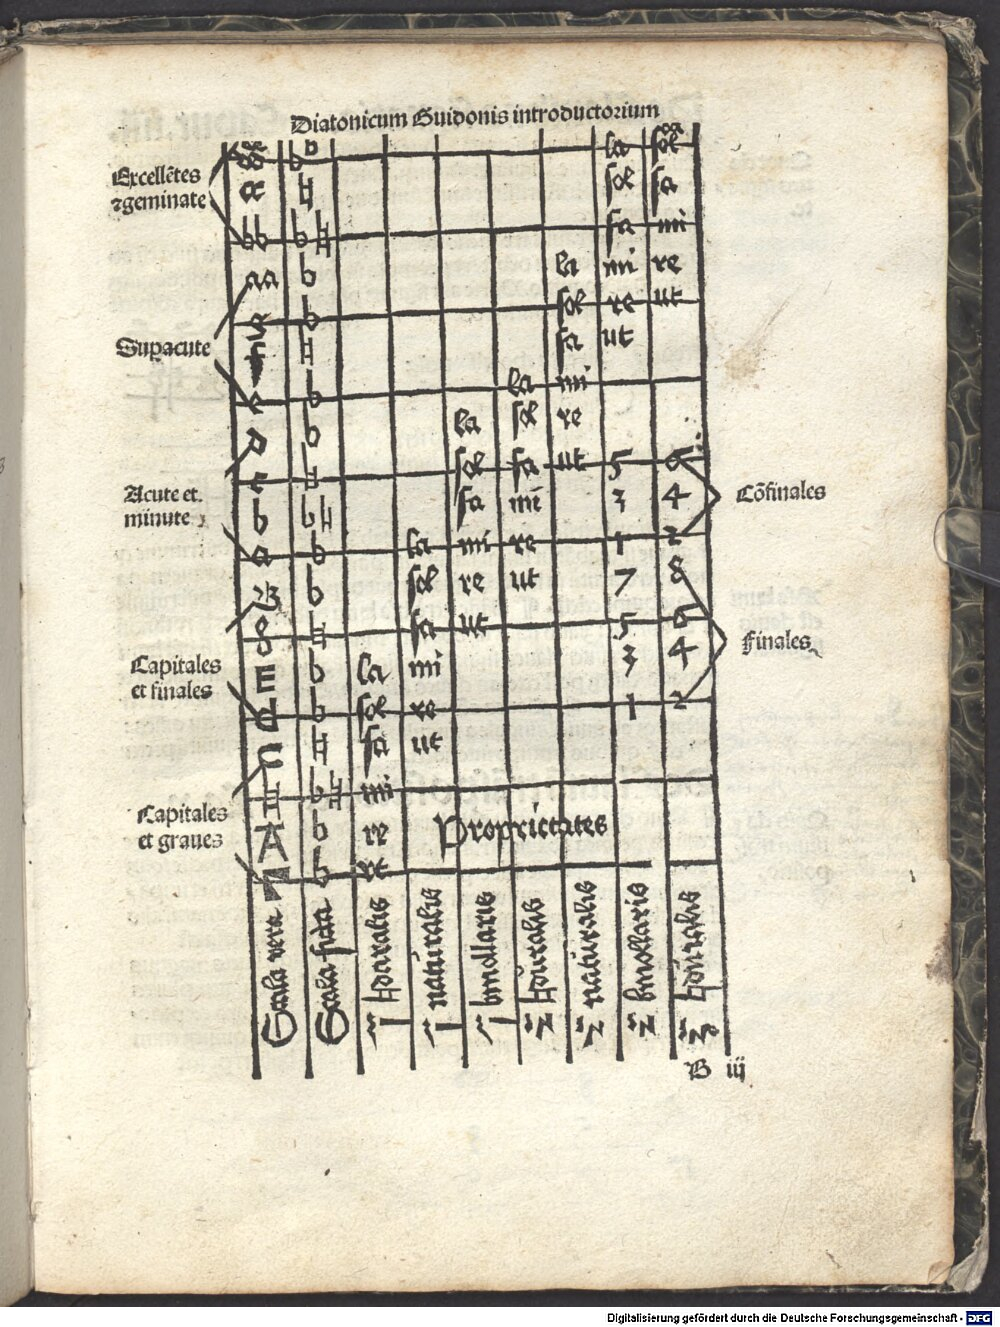 Diatonicum Guidonis introductorium
Excellẽtes
⁊geminate
Supacute
Acute et.
minute
Capitales
et finales
Capitales
et graues
b la sol
♮ sol fa
bb b♮ fa mi
aa b la mi re
b sol re ut
♮ fa ut
b la mi
b la sol re
♮ sol fa ut 5 6
b b♮ fa mi 3 4
a b la mi re 1 2
b sol re ut 7 8
g ♮ fa ut 5 6
E b la mi 3 4
d b sol re 1 2
♮ fa ut
b♮ mi
A b re
b
Proprietates
Cõfinales
Finales
Scala vera
Scala ficta
♮duralis
naturalis
bmollaris
♮duralis
naturalis
bmollaris
♮duralis
B iij
Digitalisierung gefördert durch die Deutsche Forschungsgemeinschaft - DFG